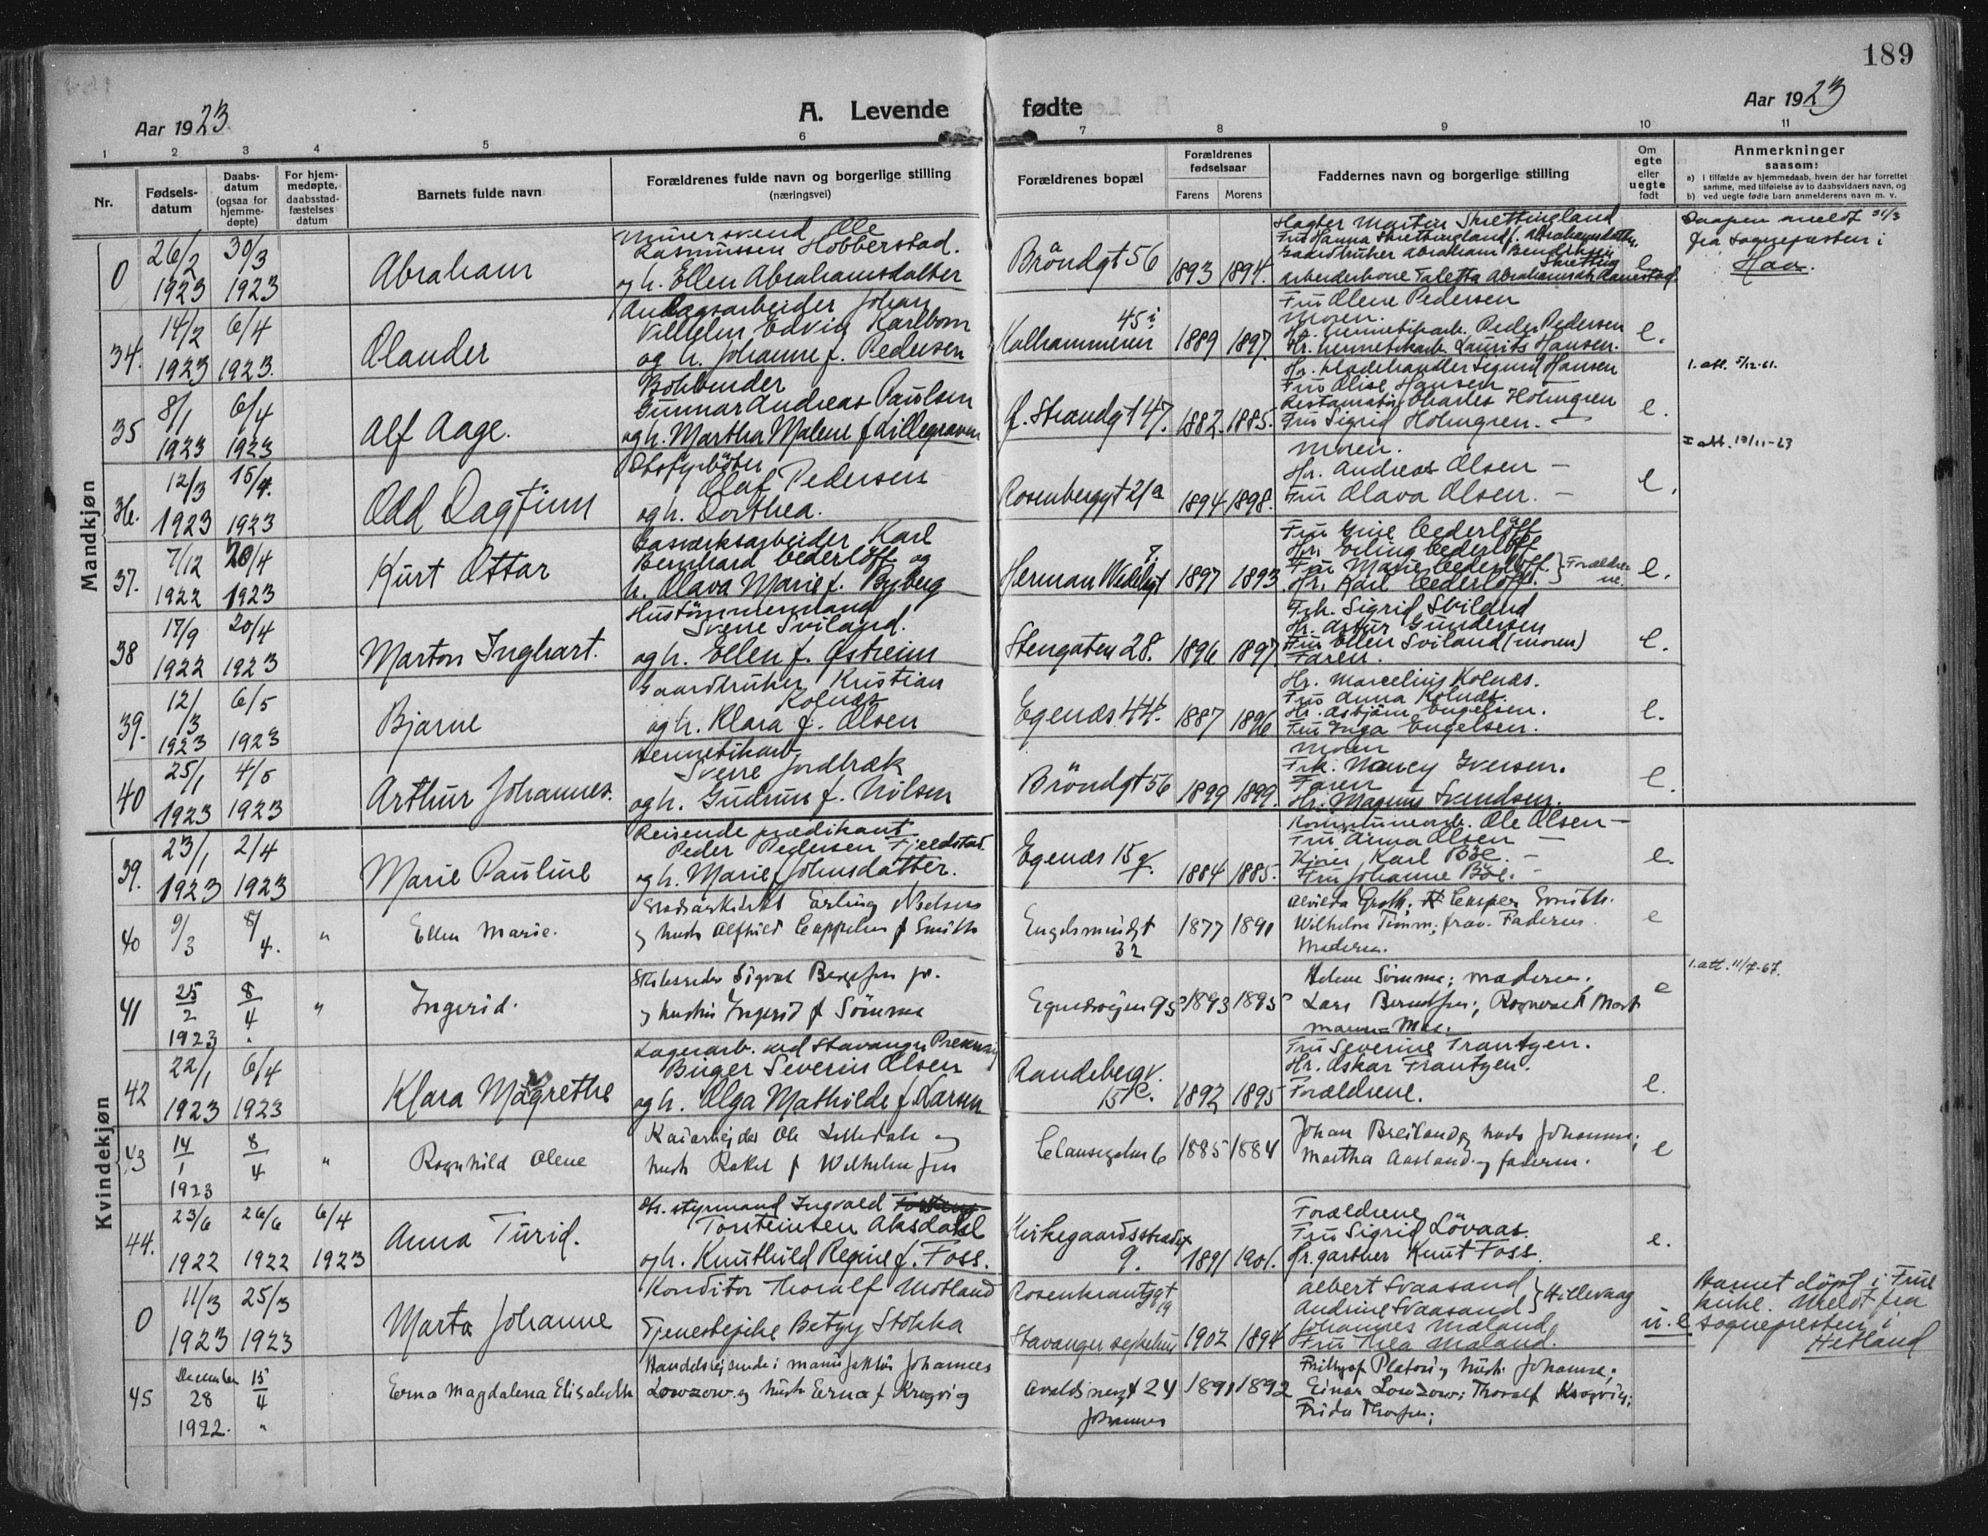 189
Aar 1923.
A. Levende fødte
Aar 1923
1 2 3 4 5 6 7 8 9 10 11
Nr.
Fødsels-
datum
Daabs-
datum
(ogsaa for
hjemme-
døpte)
For hjem-
medøpte,
daabsstad-
fæstelses
datum
Barnets fulde navn
Forældrenes fulde navn og borgerlige stilling
(næringsvei)
Forældrenes bopæl
Forældrenes
fødselsaar
Farens Morens
Faddernes navn og borgerlige stilling
Om
egte
eller
uegte
født
Anmerkninger
saasom:
a) i tilfælde av hjemmedaab, hvem der har forrettet
samme, med tilføielse av to daabsvidners navn, og
b) ved uegte fødte barn anmelderens navn m. v.
Mandkjøn
0 26/2 1923 30/3 1923
Abraham
Murersvend Ole
Rasmussen Hobberstad.
og h. Ellen Abrahamsdatter
Brøndgt 56
1893 1894.
Martin Skrettingland
Fru Hanna Skrettingland f. Abrahamsdatter
e
Daapen meldt 31/3
fra sognepresten i
Haa.
34. 14/2 1923 6/4 1923.
Olander
Anlægsarbeider Johan
Vilhelm Edvin Karlbom
og h. Johanne f. Pedersen
45 i
Kalhammeren
1889 1897.
Fru Olene Pedersen
Moren.
Hr. hermetikarb. Peder Pedersen
Hr. hermetikarb. Laurits Hansen.
e.
35 8/1 1923 6/4 1923
Alf Aage.
Bokbinder
Gunnar Andreas Paulsen
og h. Martha Malene f. Lillegraven
Ø. Strandgt 47.
1882. 1885.
Hr. Sigurd Hansen
Fru Elise Hansen
Charles Holmgren
Fru Sigrid Holmgren. —
e.
1. att. 5/12-61.
36. 12/3 1923 15/4. 1923
Odd Dagfinn
Olaf Pedersen
og h. Dorthea.
Rosenberggt 21a
1894 1898.
Moren.
Hr. Andreas Olsen —
Fru Olava Olsen. —
e.
1 att. 19/11-63
37. 7/12 1922 20/4 1923
Kurt Ottar
Gasværksarbeider Karl
Bernhard Cederløff og
h. Olava Marie f. Byberg
7.
Herman Wedelsgt
1897 1893
Fru Gine Cederløff
Hr. Erling Cederløff
Fru Marie Cederløff } Forældre-
Hr. Karl Cederløff. ne.
e.
38 17/9 1922 20/4 1923
Marton Inghart.
Hustømmermand
Svene Sviland.
og h. Ellen f. Østreim
Stengaten 28.
1896 1897
Frk. Sigrid Sviland
Hr. Artur Gundersen
Fru Ellen Sviland (moren)
Faren.
e.
39. 12/3 1923 6/5 1923
Bjarne
Gaardbruker Kristian
Kolnæs
og h. Klara f. Olsen
Egenæs 44.
1887 1896
Hr. Marcelius Kolnæs.
Fru Anna Kolnæs.
Hr. Asbjørn Engelsen.
Fru Inga Engelsen.
e.
40 25/1 1923 4/5 1923
Arthur Johannes.
Hermetikarb.
Sverre Jordbræk
og h. Gudrun f. Nilsen
Brøndgt 56
1899 1899.
Moren
Frk. Nancy Iversen.
Faren
Hr. Magnus Svendsen.
e.
Kvindekjøn
39. 23/1 1923 2/4 1923
Marie Pauline
Reisende prædikant
Peder Pedersen Fjeldstad.
og h. Marie Johnsdatter.
Egenæs 15
1884 1885.
Ole Olsen —
Fru Anna Olsen —
Karl Bøe. —
Fru Johanne Bøe. —
e.
40 9/3 8/4. "
Ellen Marie.
Stadsarkitekt Erling Nielsen
og hust. Alfhild Cappelen f Smith
Engelsmindgt
32
1877 1891
Alvilda Groth. Casper Smith.
Wilhelm Timm; frav. Faderen
Moderen.
e
41 25/2 1923 8/4 " "
Ingerid.
Skibsreder Sigval Bergesen jr.
og hustru Ingerid f Sømme
Egenæsveien 95
1893 1895
Helene Sømme; moderen;
e
1. att. 11/7-67.
42 22/1 1923 6/4 1923
Klara Magrethe
Lagerarb. ved Stavanger Preserving
Birger Severin Olsen
og h. Olga Mathilde f. Larsen
Randebergv.
15 c.
1892 1895
Fru Severine Frantzen.
Hr. Oskar Frantzen.
Forældrene.
e.
43 14/1 1923 8/4 "
Ragnhild Olene
Kaiarbejder Ole Lilledale og
hust. Rakel f Wilhelmsen
Clausegaten 6
1885 1884
Johan Breiland og hust Johanne;
Martha Aasland og faderen.
e
44. 23/6 1922 26/6 1922 6/4 1923
Anna Turid.
styrmand Ingvald
Torsteinsen Aksdahl
og h. Knuthild Regine f. Foss.
Kirkegaardsstrædet
9.
1891 1901.
Forældrene
Fru Sigrid Løvaas.
Hr. gartner Knut Foss.
e.
0 11/3 1923 25/3 1923
Marta Johanne
Konditor Thoralf Motland
Tjenestepike Betzy Stokka
Rosenkrantzgt
19
Stavanger sykehus
1902 1894
Albert Svaasand } Hillevaag
Andrine Svaasand
Johannes Maland
Fru Thea Maland.
u. e.
Barnet døpt i Frue
kirke. Meldt fra
sognepresten i
Hetland
45 December 28 1922. 15/4 "
Erna Magdalena Elisabeth
Handelsrejsende i manufaktur Johannes
Lowzow og hust Erna f Krogvig
Avaldsnesgt 24
Johannes
1891 1892
Frithjof Platou og hust. Johanne;
Einar Lowzow; Thoralf Krogvig;
Frida Thorsen;